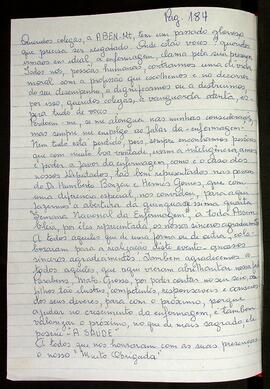 Pag. 184
Queridos colegas, a ABEN-Mt, tem um passado glorioso
que precisa ser resgatado. Onde estão vocês? queridos
irmãos em ideal, a enfermagem, clama pela sua presença.
Todos nós, pessoas humanas, contraímos uma dívida
moral com a profissão que escolhemos e no decorrer
do seu desempenho, a dignificamos ou a destruímos,
por isso, queridos colegas, à vanguarda, atentos, e
para tudo de
Perdoem-me, se me alonguei nas minhas considerações,
mas sempre me empolgo ao falar da enfermagem.
Nem tudo está perdido, pois sempre encontramos pessoas
que com muita boa vontade, usam a inteligência
e poder a favor da enfermagem, como é o caso dos
nossos Deputados, tão bem representados nas pessoas
de Dr. Humberto Bosaipo e Hermes Gomes, que com
uma deferência especial, nos convidam, para aqui
fazermos a abertura da quinquagésima quarta
Semana Nacional da Enfermagem, a toda Assem
bléia, por eles representada, os nossos sinceros agradecimentos
A todos aqueles que de uma forma ou de outra, cola
boraram para a realização deste evento nossos
sinceros agradecimentos. Também agradecemos a
todos aqueles, que aqui vieram abrilhantar nossa festa
Parabéns, Mato Grosso, por poder contar no seu seio, de
filhos tão ilustres, competentes, responsáveis e conscientes
dos seus deveres, para com o próximo, porque
ajudar no crescimento da enfermagem, é também
valorizar o próximo, no que de mais sagrado, ele
possui - "A SAÚDE"
A todos que nos honraram com as suas presenças
o nosso "Muito Obrigada"